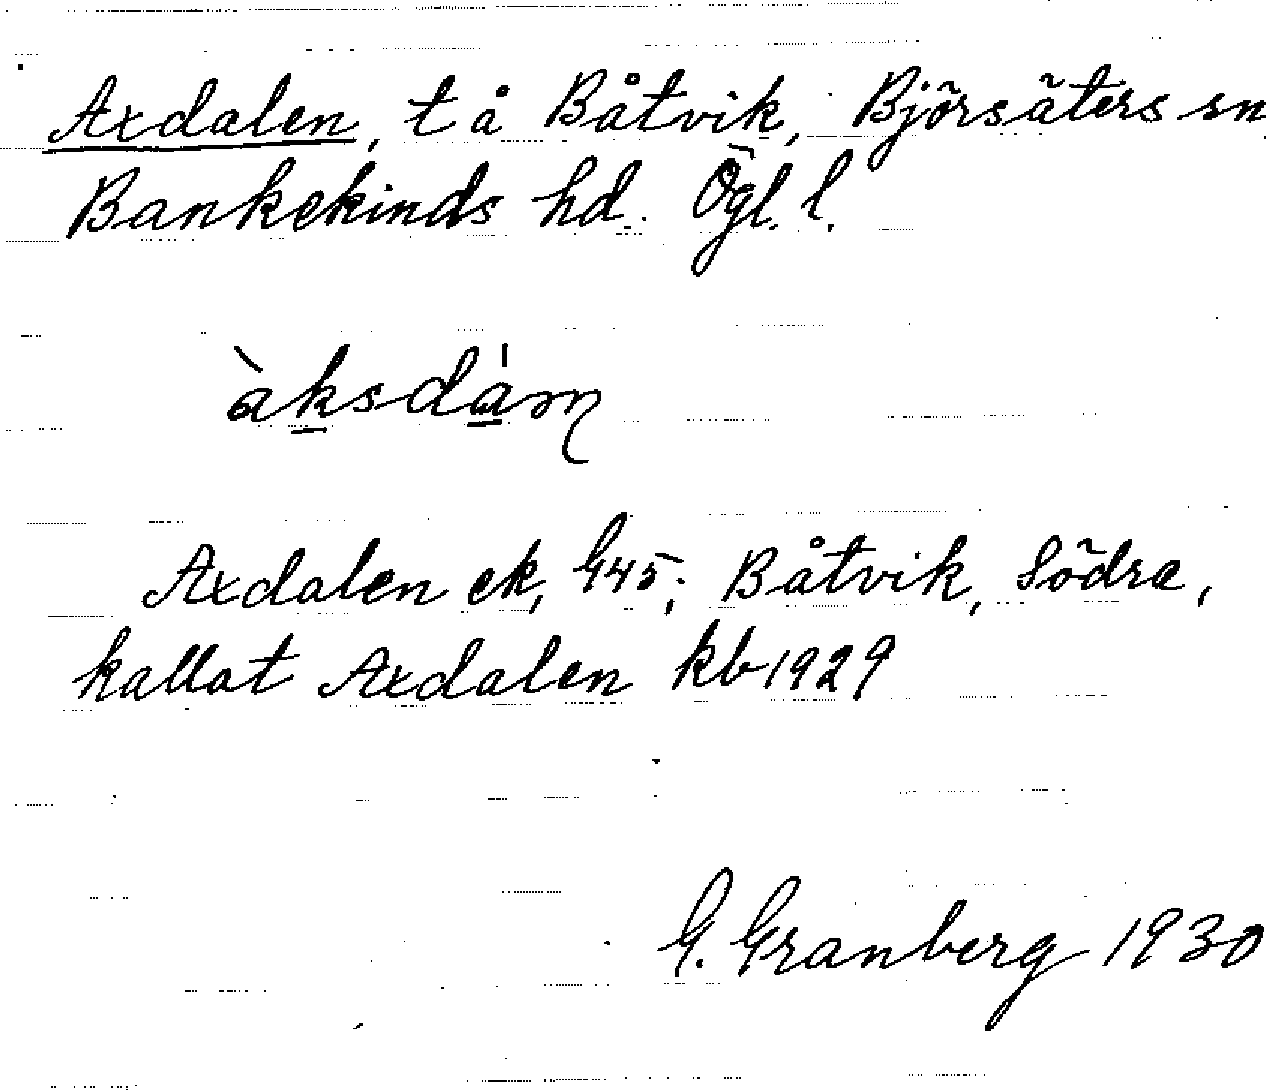 Axdalen, t å Båtvik, Björsäters sn
Bankekinds hd. Ögl. l.
àksdám
Axdalen ek, G45; Båtvik, Södra,
kallat Axdalen kb 1929
G. Granberg 1930